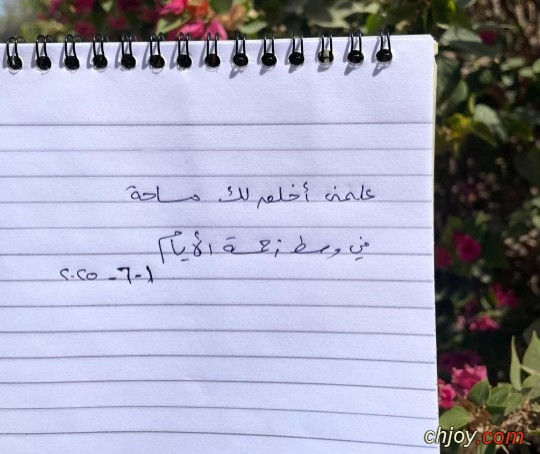 علمني أخلص لك مساحة
في وسط زحمة الأيام
١-٦-٢٠٢٥
chjoy.com